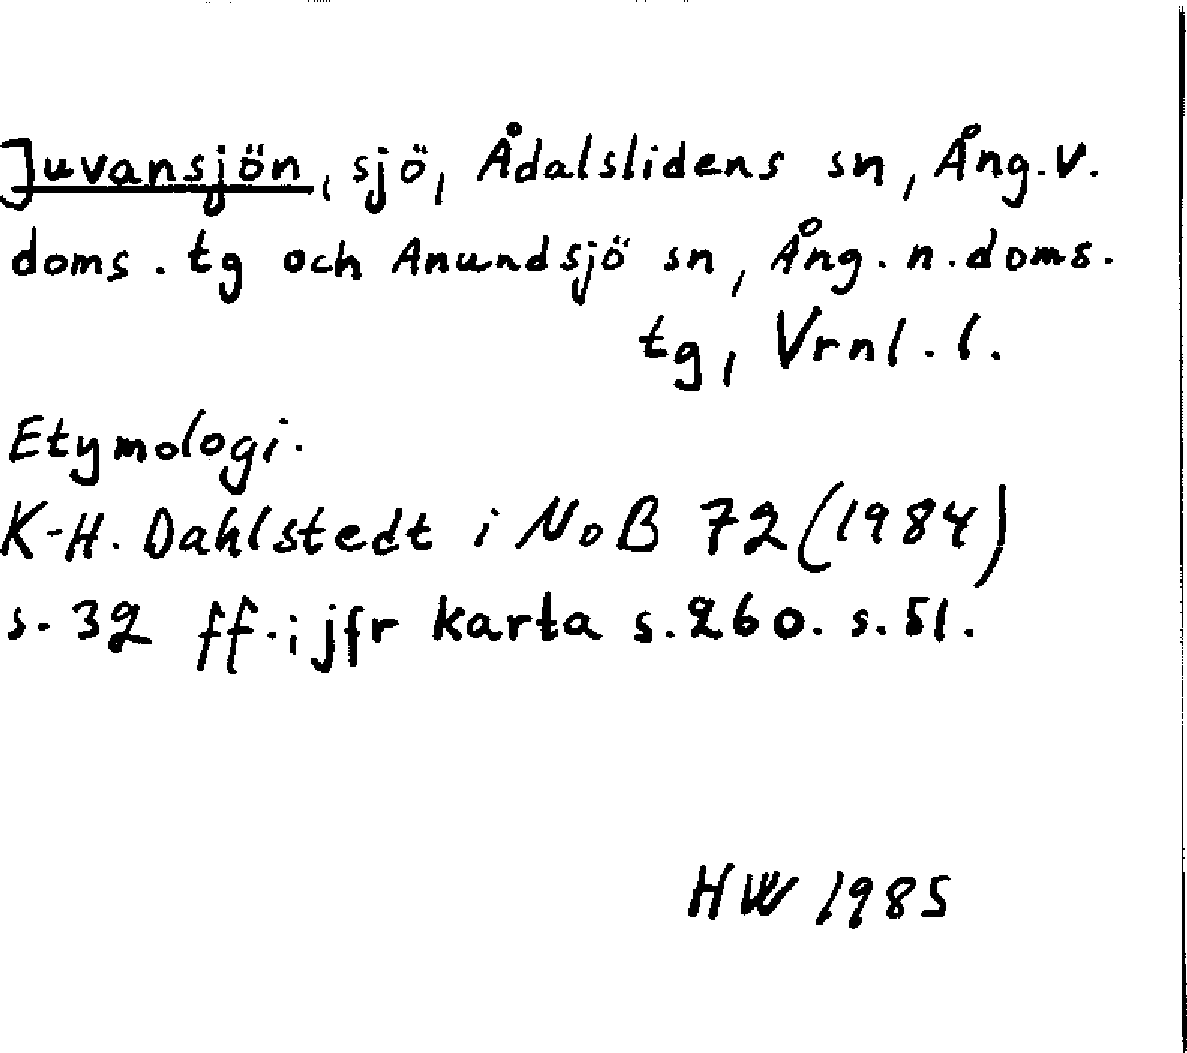 Juvansjön, sjö, Ådalslidens sn, Ång. v.
doms. tg och Anundsjö sn, Ång. n. doms.
tg, Vrnl. l.
Etymologi.
K-H. Dahlstedt i NoB 72 (1984)
s. 32 ff. ; jfr karta s. 260. s. 51.
HW 1985